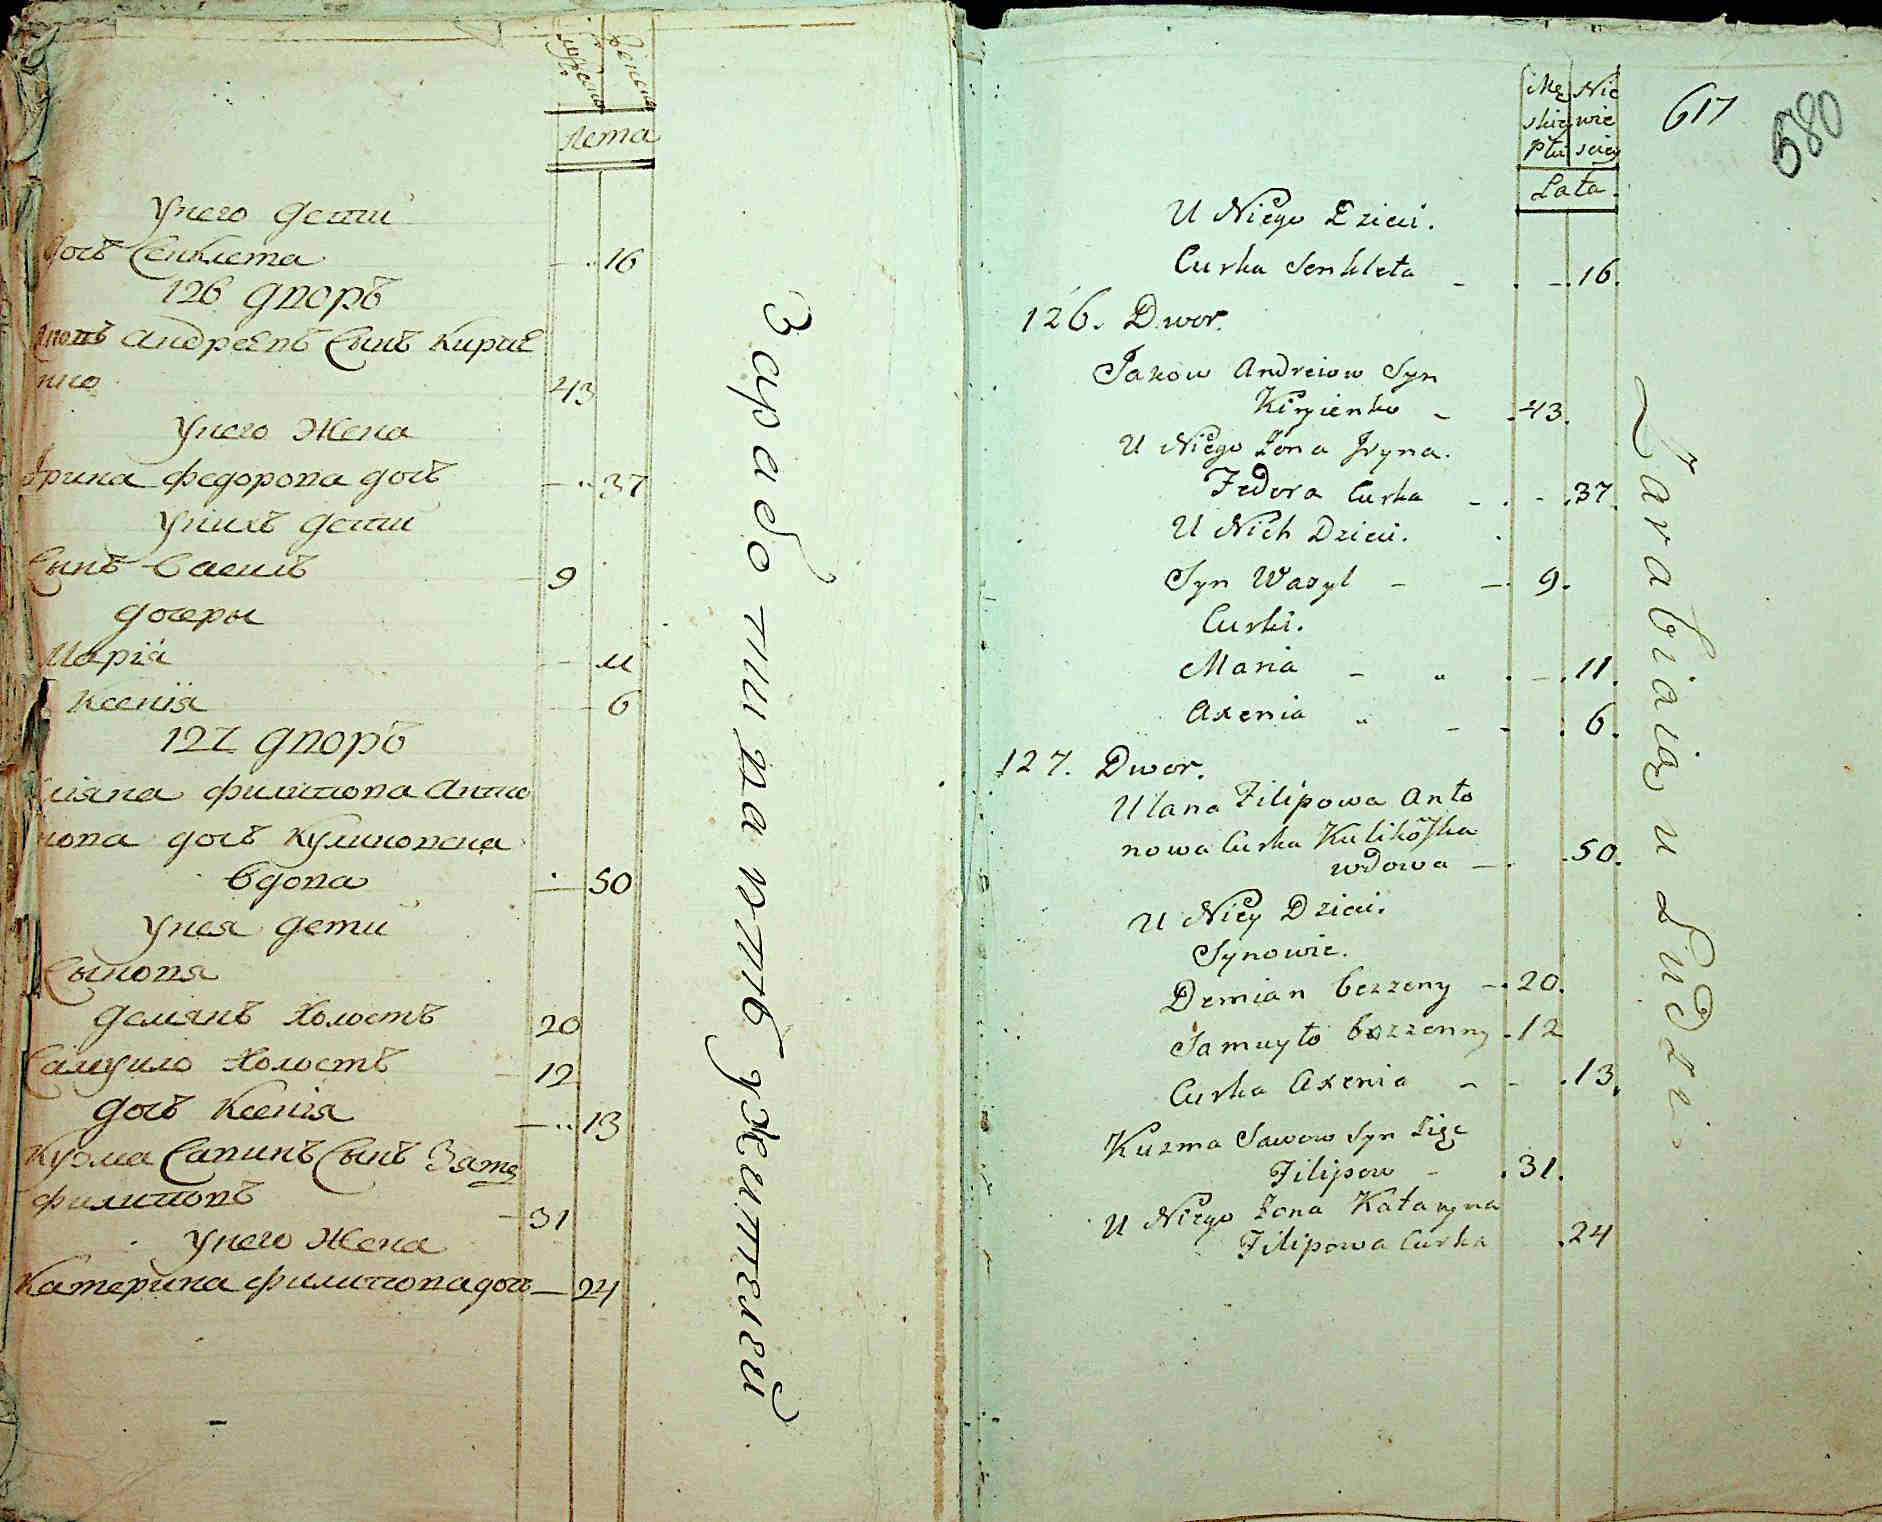 мужска женска
Лета
Унего дети
дочъ Сенклета 16
126 дворъ
Яковъ андреевъ Сынъ Кирие
нко 43
Унего Жена
Ірина федорова дочъ 37
Унихъ дети
Сынъ василъ 9
дочеры
Марія 11
Ксенія 6
127 дворъ
уляна филипова Анто
нова дочъ Куликовска
вдова 50
Унея дети
Сыновя
демянъ Холостъ 20
Самуило Холостъ 12
дочъ Ксенія 13
Кузма Савинъ Сынъ Зятъ
филиповъ 31
Унего Жена
Катерина филиповадочъ 24
Заработивать ужителей
Mę Nie
skiey wie
Płci sciey
Lata.
617
580
U Niego Dzieci.
Curka Senkleta 16.
126. Dwor.
Jakow Andreiow Syn
Kiryienko 43.
U Niego Zona Jryna.
Fedora Curka 37.
U Nich Dzieci.
Syn Wasyl 9.
Curki.
Maria 11.
Axenia 6.
127. Dwor.
Ulana Filipowa Anto
nowa Curka Kulikowska
wdowa 50.
U Niey Dzieci.
Synowie.
Demian bezzeny 20.
Samuyło bezzenny 12
Curka Axenia 13.
Kuzma Sawow Syn Zięć
Filipow 31.
U Niego Zona Kataryna
Filipowa Curka 24
Zarabiaią u Ludzi.